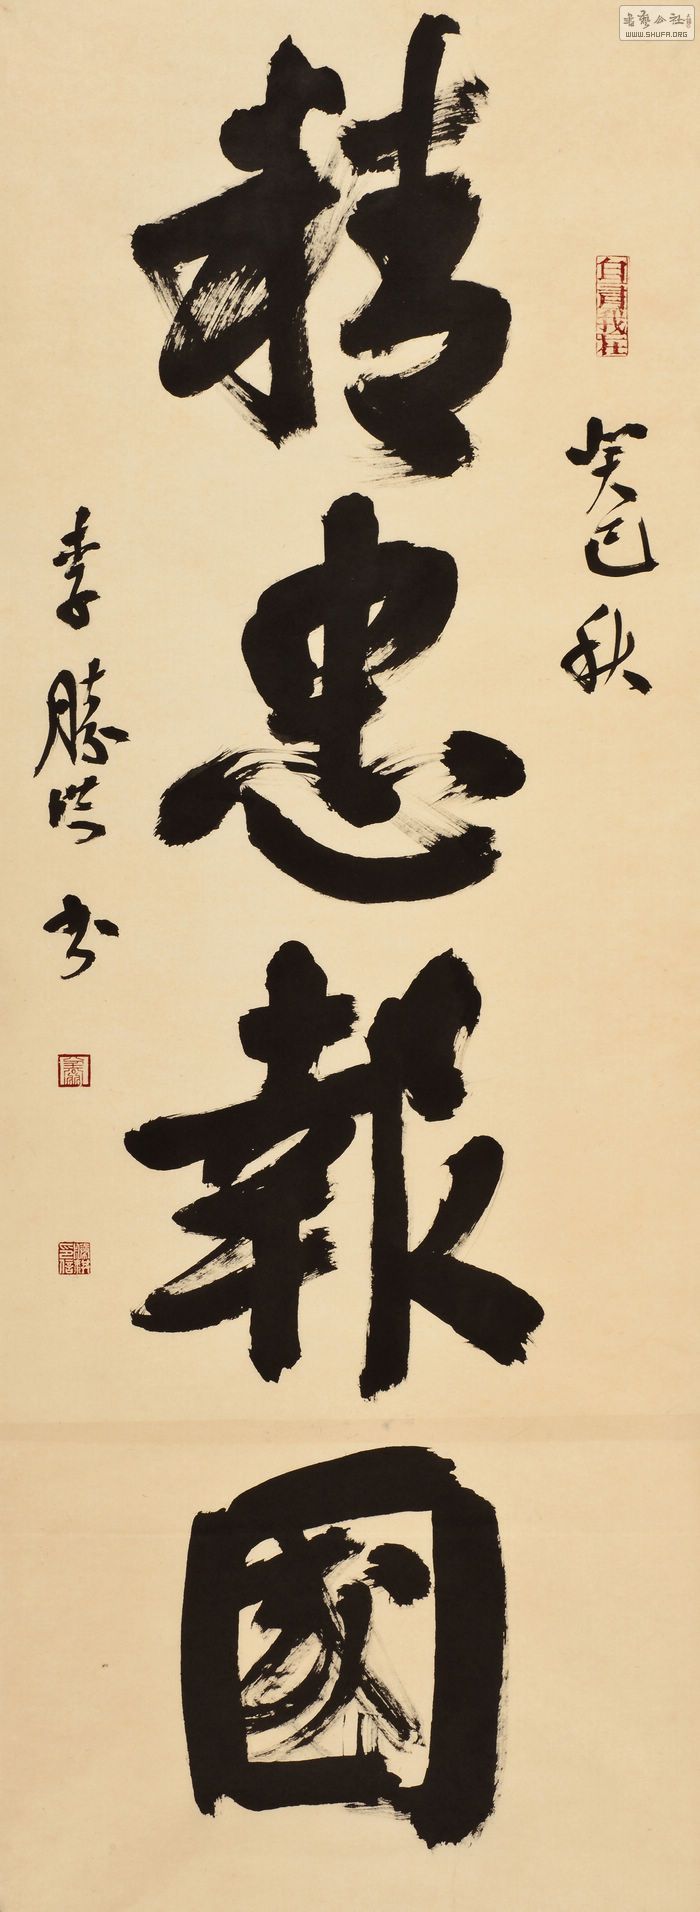 精忠報國
癸巳秋
李勝洪書
自有我在
書藝公社
WWW.SHUFA.ORG